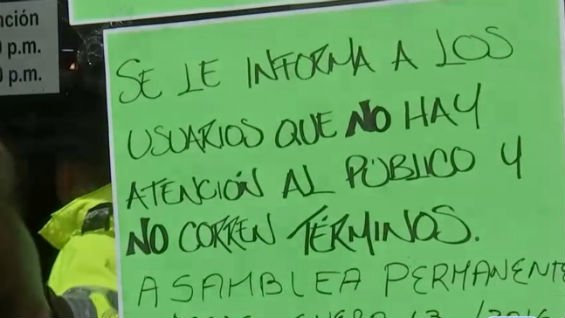 nción
p.m.
p.m.
SE LE INFORMA A LOS
USUARIOS QUE NO HAY
ATENCIÓN AL PÚBLICO Y
NO CORREN TÉRMINOS.
ASAMBLEA PERMANENTE
ENERO 13 /2016